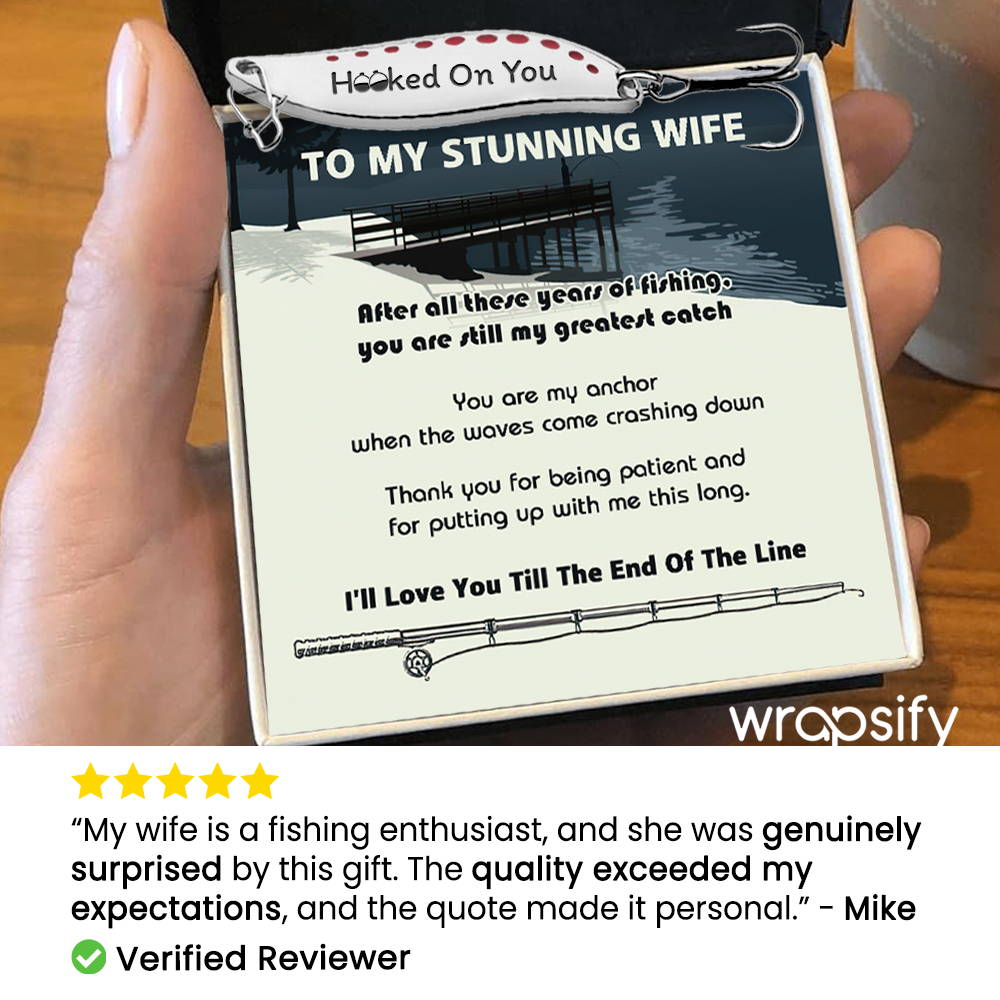 Hooked On You
TO MY STUNNING WIFE
After all these years of fishing,
you are still my greatest catch
You are my anchor
when the waves come crashing down
Thank you for being patient and
for putting up with me this long.
I'll Love You Till The End Of The Line
wrapsify
“My wife is a fishing enthusiast, and she was genuinely
surprised by this gift. The quality exceeded my
expectations, and the quote made it personal.” - Mike
Verified Reviewer